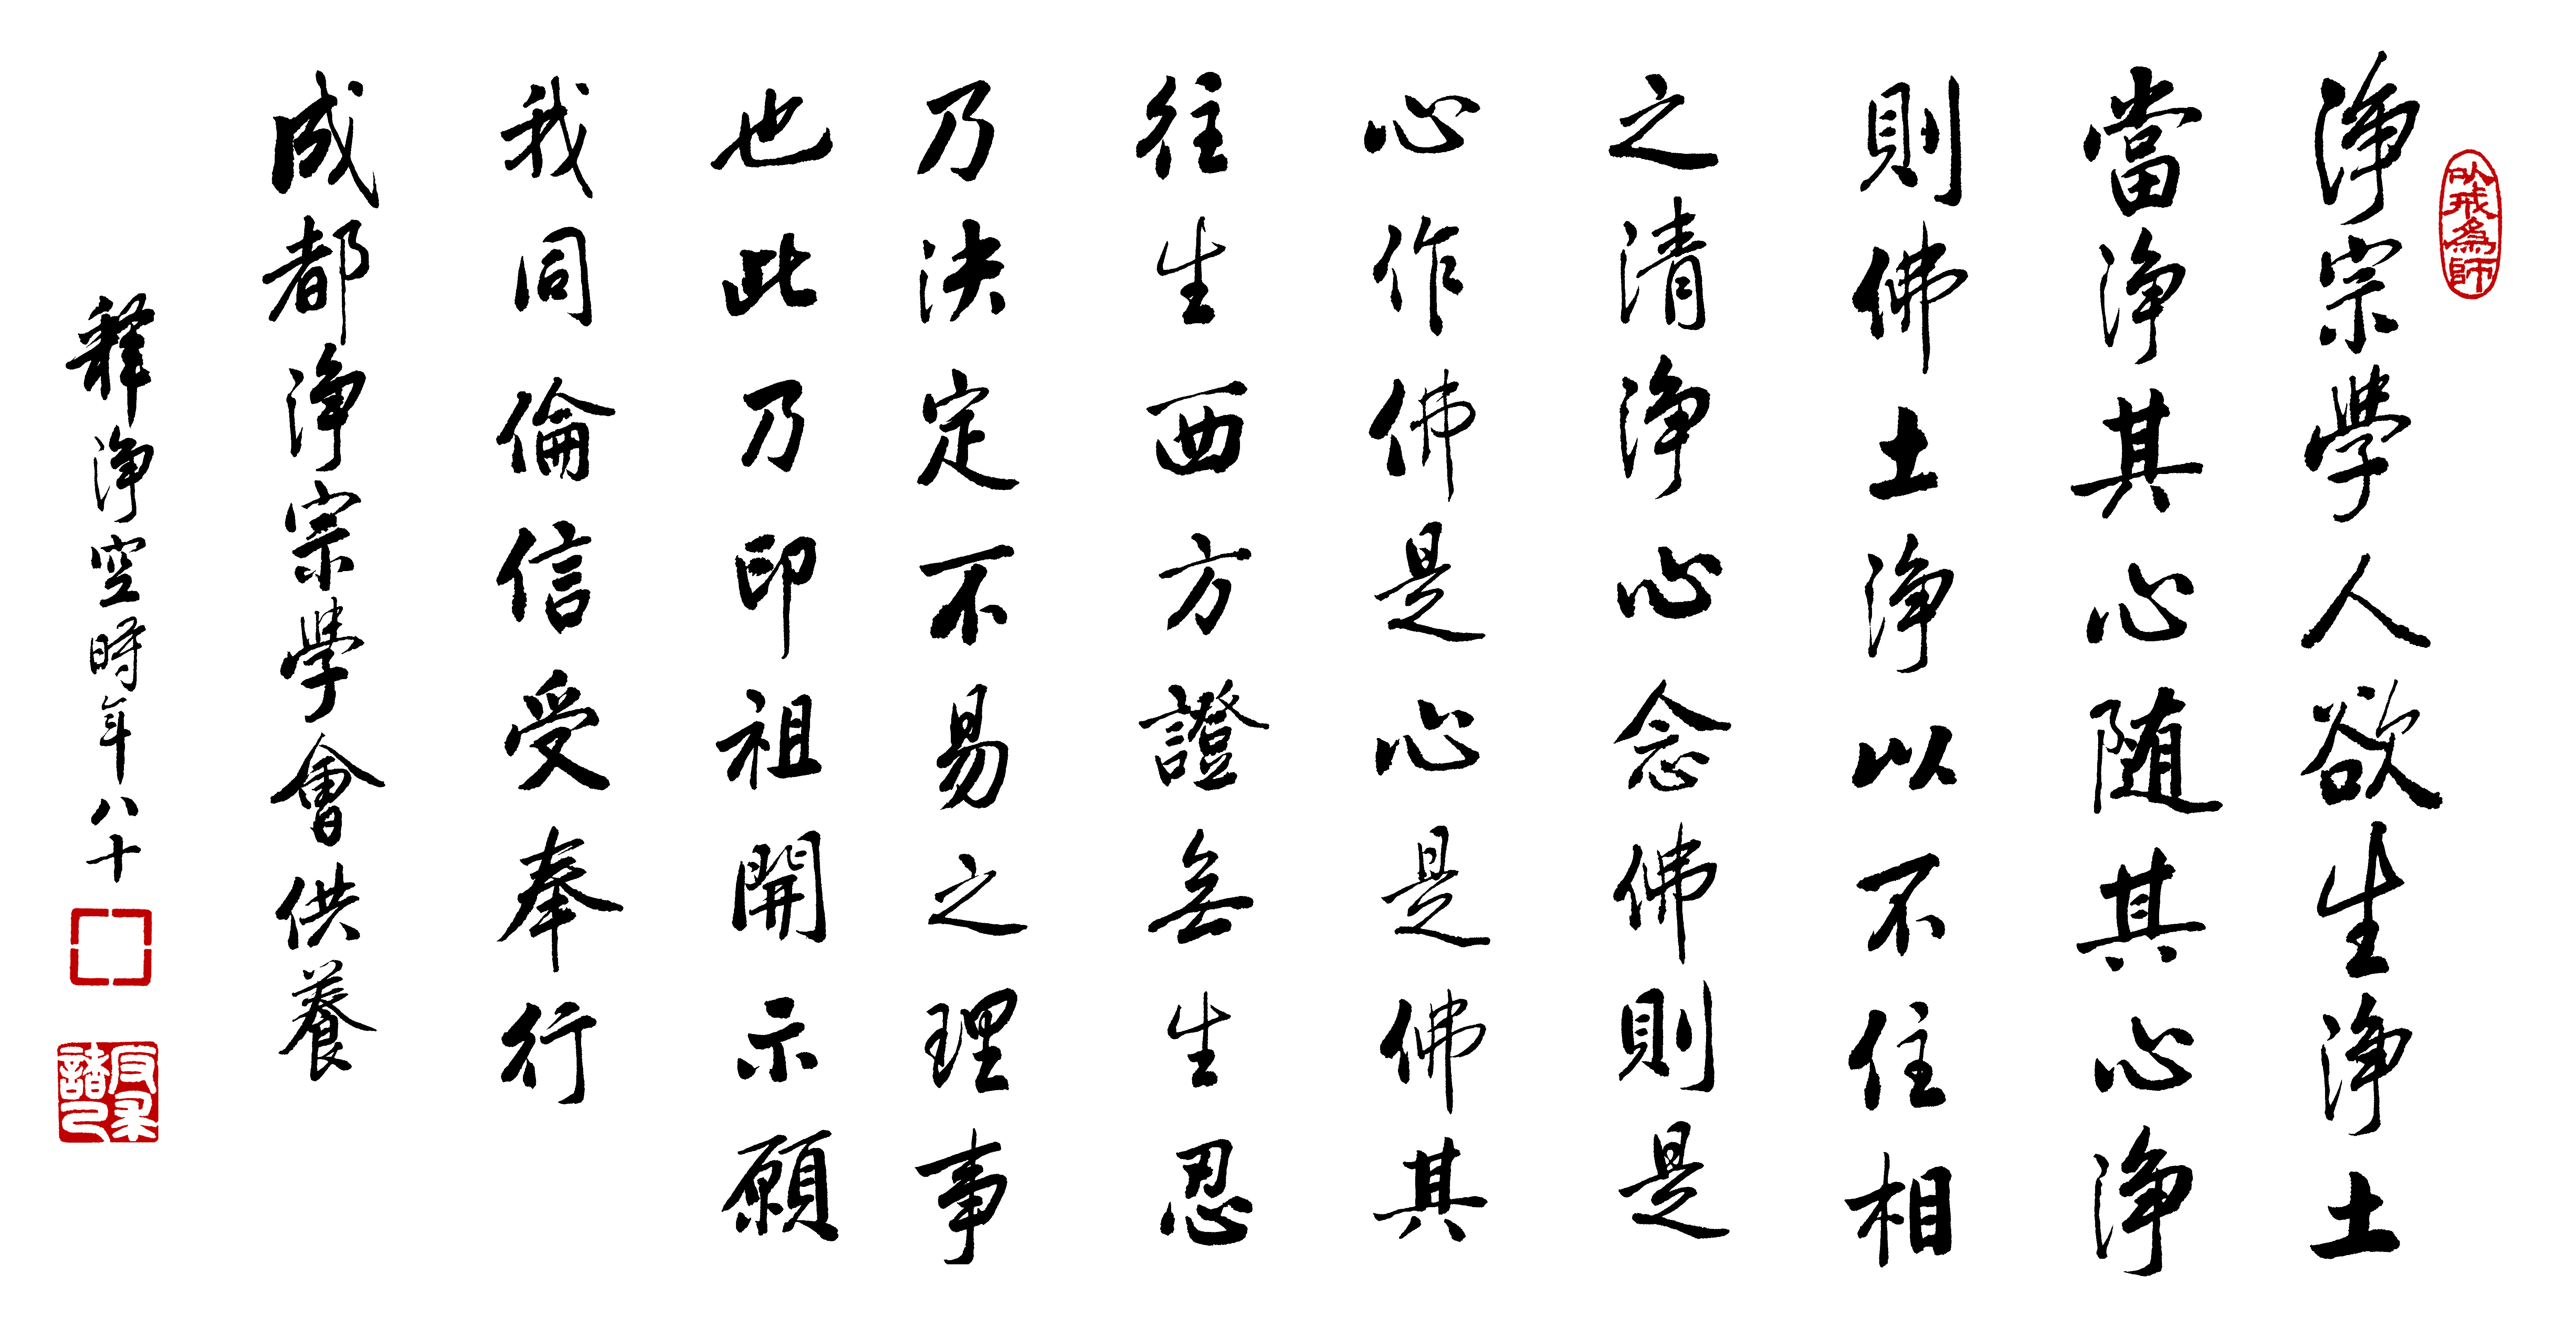 以戒為師
淨宗學人欲生淨土
當淨其心随其心淨
則佛土淨以不住相
之清淨心念佛則是
心作佛是心是佛其
往生西方證無生忍
乃決定不易之理事
也此乃印祖開示願
我同倫信受奉行
成都淨宗學會供養
釋淨空時年八十